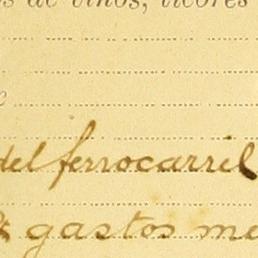 de vinos, licores
del ferrocarril
gastos